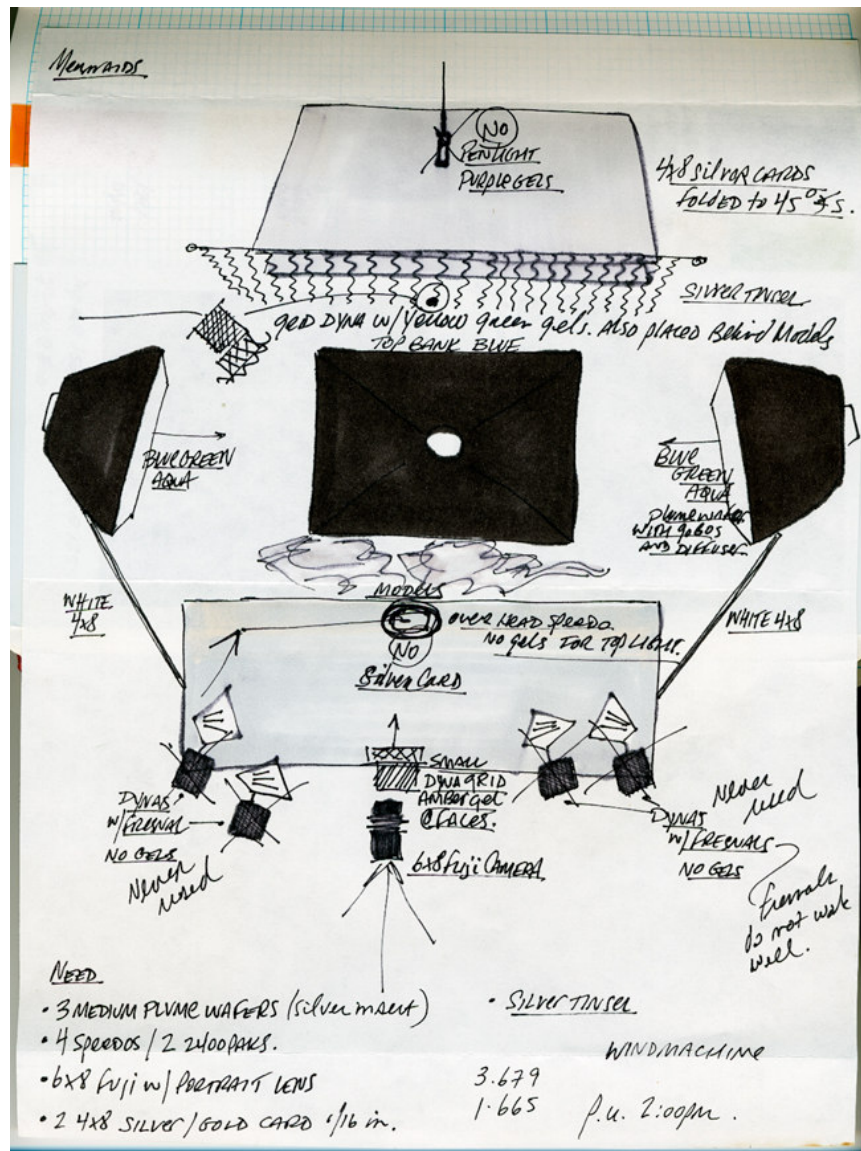 MERMAIDS
NO
PENLIGHT
PURPLE GELS
4x8 SILVER CARDS
FOLDED to 45°
SILVER TINSEL
GRID DYNA w/ Yellow green gels. Also placed Behind Models
TOP BANK BLUE
BLUE GREEN
AQUA
BLUE
GREEN
AQUA
PLUME WAFER
WITH GOBOS
AND DIFFUSER
WHITE
4x8
MODELS
OVER HEAD SPEEDO.
NO gels FOR TOP LIGHT.
WHITE 4x8
NO
Silver CARD
SMALL
DYNA GRID
AMBER gel
@ FACES.
DYNAS
w/ FRESNAL
NO GELS
Never
used
6x8 Fuji CAMERA
DYNAS
w/ FRESNALS
NO GELS
Never
used
Fresnals
do not work
well.
NEED
• 3 MEDIUM PLUME WAFERS (silver insert)
• 4 SPEEDOS / 2 2400 PAKS.
• 6x8 Fuji w/ PORTRAIT LENS
• 2 4x8 SILVER / GOLD CARD 1/16 in.
• SILVER TINSEL
WINDMACHINE
3.679
1.665
P.U. 2:00pm.